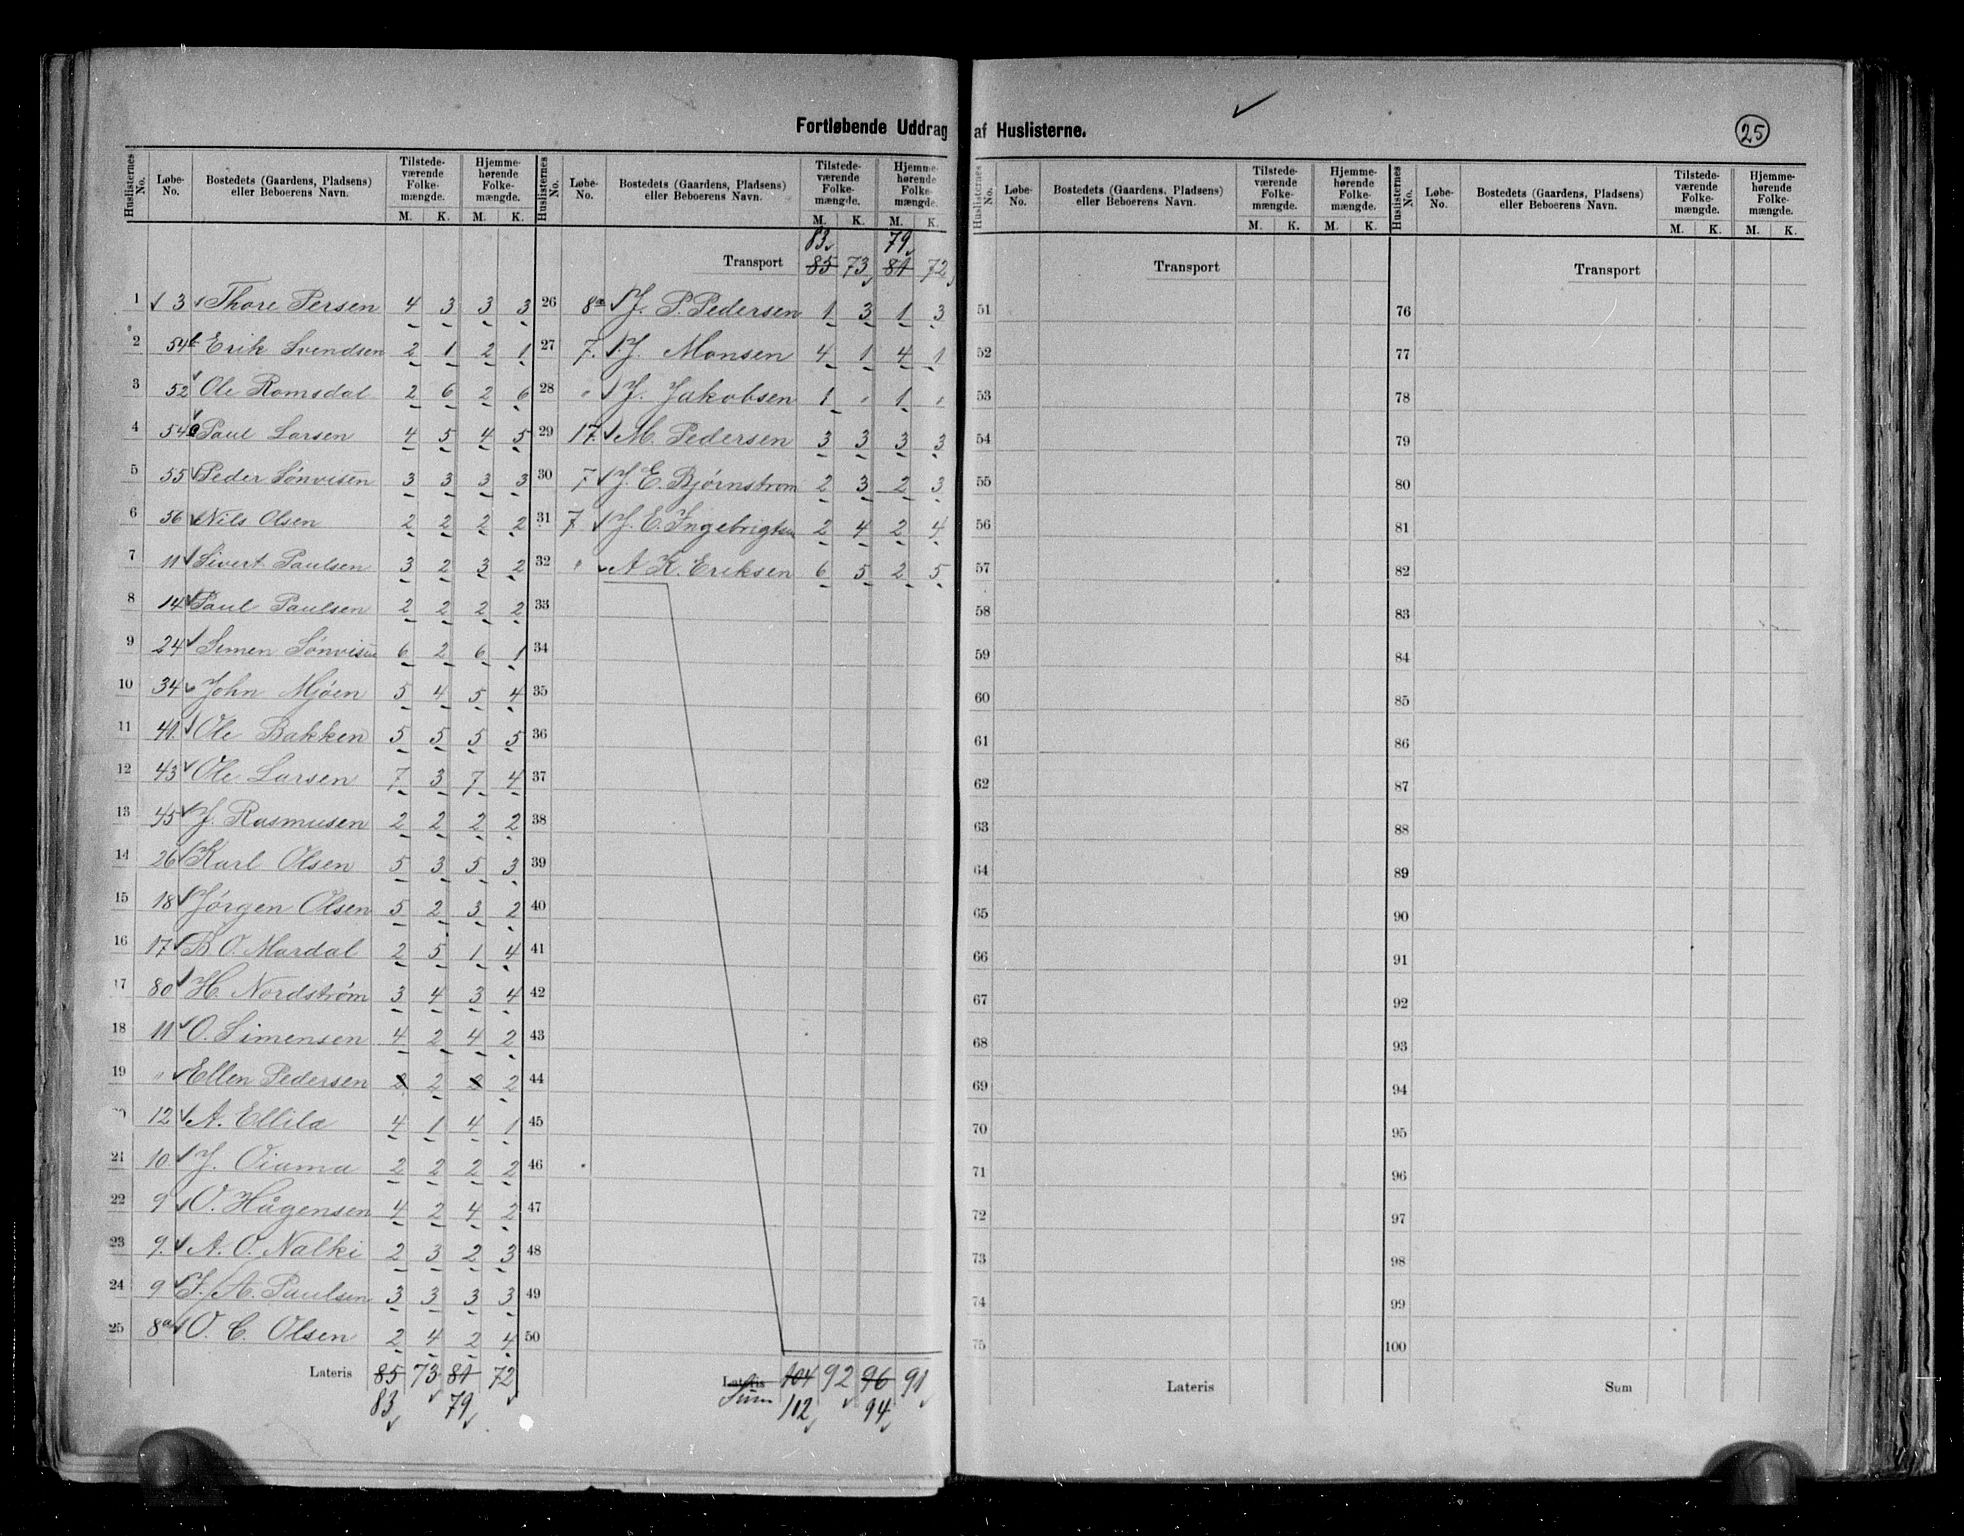 Fortløbende Uddrag af Huslisterne.
25
Huslisternes No. Løbe-No. Bostedets (Gaardens, Pladsens) eller Beboerens Navn. Tilstedeværende Folkemængde. M. K. Hjemmehørende Folkemængde. M. K.
1 3 Thore Persen 4 3 3 3
2 54 Erik Svendsen 2 1 2 1
3 52 Ole Romsdal 2 6 2 6
4 54 Paul Larsen 4 5 4 5
5 55 Peder Sønvisen 3 3 3 3
6 56 Nils Olsen 2 2 2 2
7 11 Sivert Paulsen 3 2 3 2
8 14 Paul Paulsen 2 2 2 2
9 24 Simen Sønvisen 6 2 6 1
10 34 John Mjøen 5 4 5 4
11 41. Ole Bakken 5 5 5 5
12 43 Ole Larsen 7 3 7 4
13 45 J. Rasmusen 2 2 2 2
14 26 Karl Olsen 5 3 5 3
15 18 Jørgen Olsen 5 2 3 2
16 17 B. O. Mardal 2 5 1 4
17 80 H. Nordstrøm 3 4 3 4
18 11 O. Simensen 4 2 4 2
19 " Ellen Pedersen 2 2 2 2
20 12 A. Ellila 4 1 4 1
21 10. J. Oiama 2 2 2 2
22 9 O. Hågensen 4 2 4 2
23 9. A. O. Nalki 2 3 2 3
24 9 J. A. Paulsen 3 3 3 3
25 8a O. C. Olsen 2 4 2 4
Lateris 85 73 81 72
83 79
Huslisternes No. Løbe-No. Bostedets (Gaardens, Pladsens) eller Beboerens Navn. Tilstedeværende Folkemængde. M. K. Hjemmehørende Folkemængde. M. K.
83 79
Transport 85 73 81 72
26 8a J. P. Pedersen 1 3 1 3
27 7. J. Monsen 4 1 4 1
28 " J. Jakobsen 1 " 1 "
29 17. M. Pedersen 3 3 3 3
30 7 J. E. Bjørnstrøm 2 3 2 3
31 7. J. E. Ingebrigtsen 2 4 2 4
32 " A. K. Eriksen 6 5 2 5
33
34
35
36
37
38
39
40
41
42
43
44
45
46
47
48
49
50
Lateris 104 92 96 91
Sum 102 94
Huslisternes No. Løbe-No. Bostedets (Gaardens, Pladsens) eller Beboerens Navn. Tilstedeværende Folkemængde. M. K. Hjemmehørende Folkemængde. M. K.
Transport
51
52
53
54
55
56
57
58
59
60
61
62
63
64
65
66
67
68
69
70
71
72
73
74
75
Lateris
Huslisternes No. Løbe-No. Bostedets (Gaardens, Pladsens) eller Beboerens Navn. Tilstedeværende Folkemængde. M. K. Hjemmehørende Folkemængde. M. K.
Transport
76
77
78
79
80
81
82
83
84
85
86
87
88
89
90
91
92
93
94
95
96
97
98
99
100
Sum